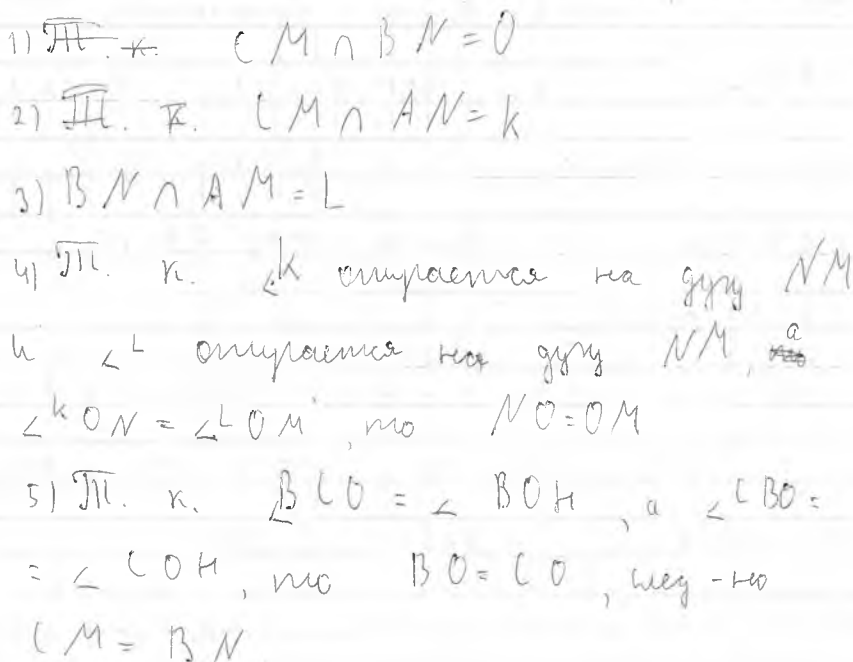 1) Т. к. CM ∩ BN = O
2) Т. к. CM ∩ AN = K
3) BN ∩ AM = L
4) Т. к. ∠K опирается на дугу NM
и ∠L опирается на дугу NM, а
∠KON = ∠LOM, то NO = OM
5) Т. к. ∠BCO = ∠BOH, а ∠CBO =
= ∠COH, то BO = CO, след-но
CM = BN